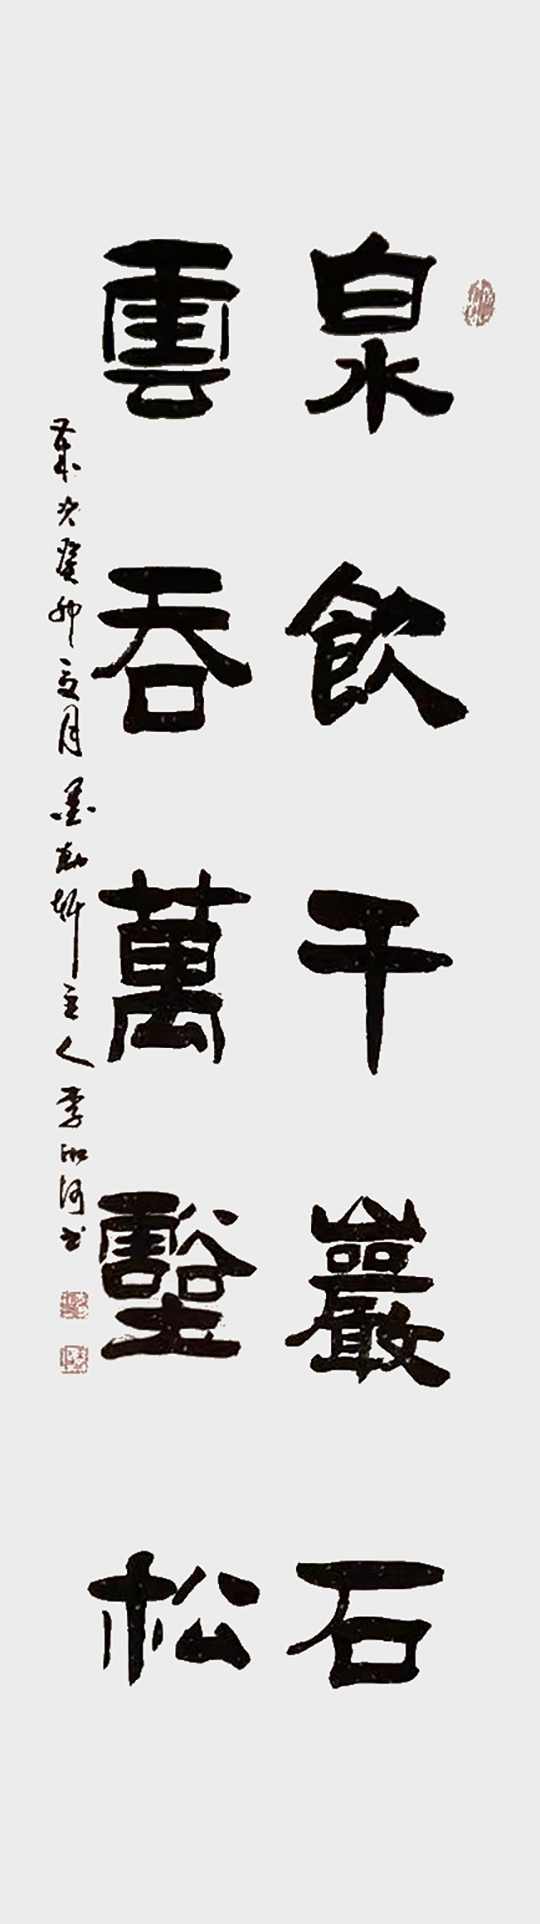 泉飲千巖石
雲吞萬壑松
歲次癸卯夏月墨勤軒主人李湘河書